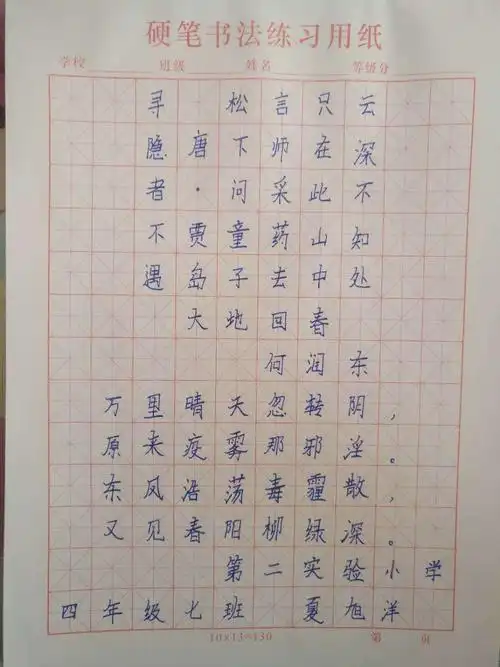 硬笔书法练习用纸
学校 班级 姓名 等级分
寻隐者不遇
唐·贾岛
松下问童子
言师采药去
只在此山中
云深不知处
大地回春
何润东
万里晴天忽转阴，
原来疫雾那邪淫。
东风浩荡毒霾散，
又见春阳柳绿深。
第二实验小学
四年级七班 夏旭洋
10×13=130 第 页